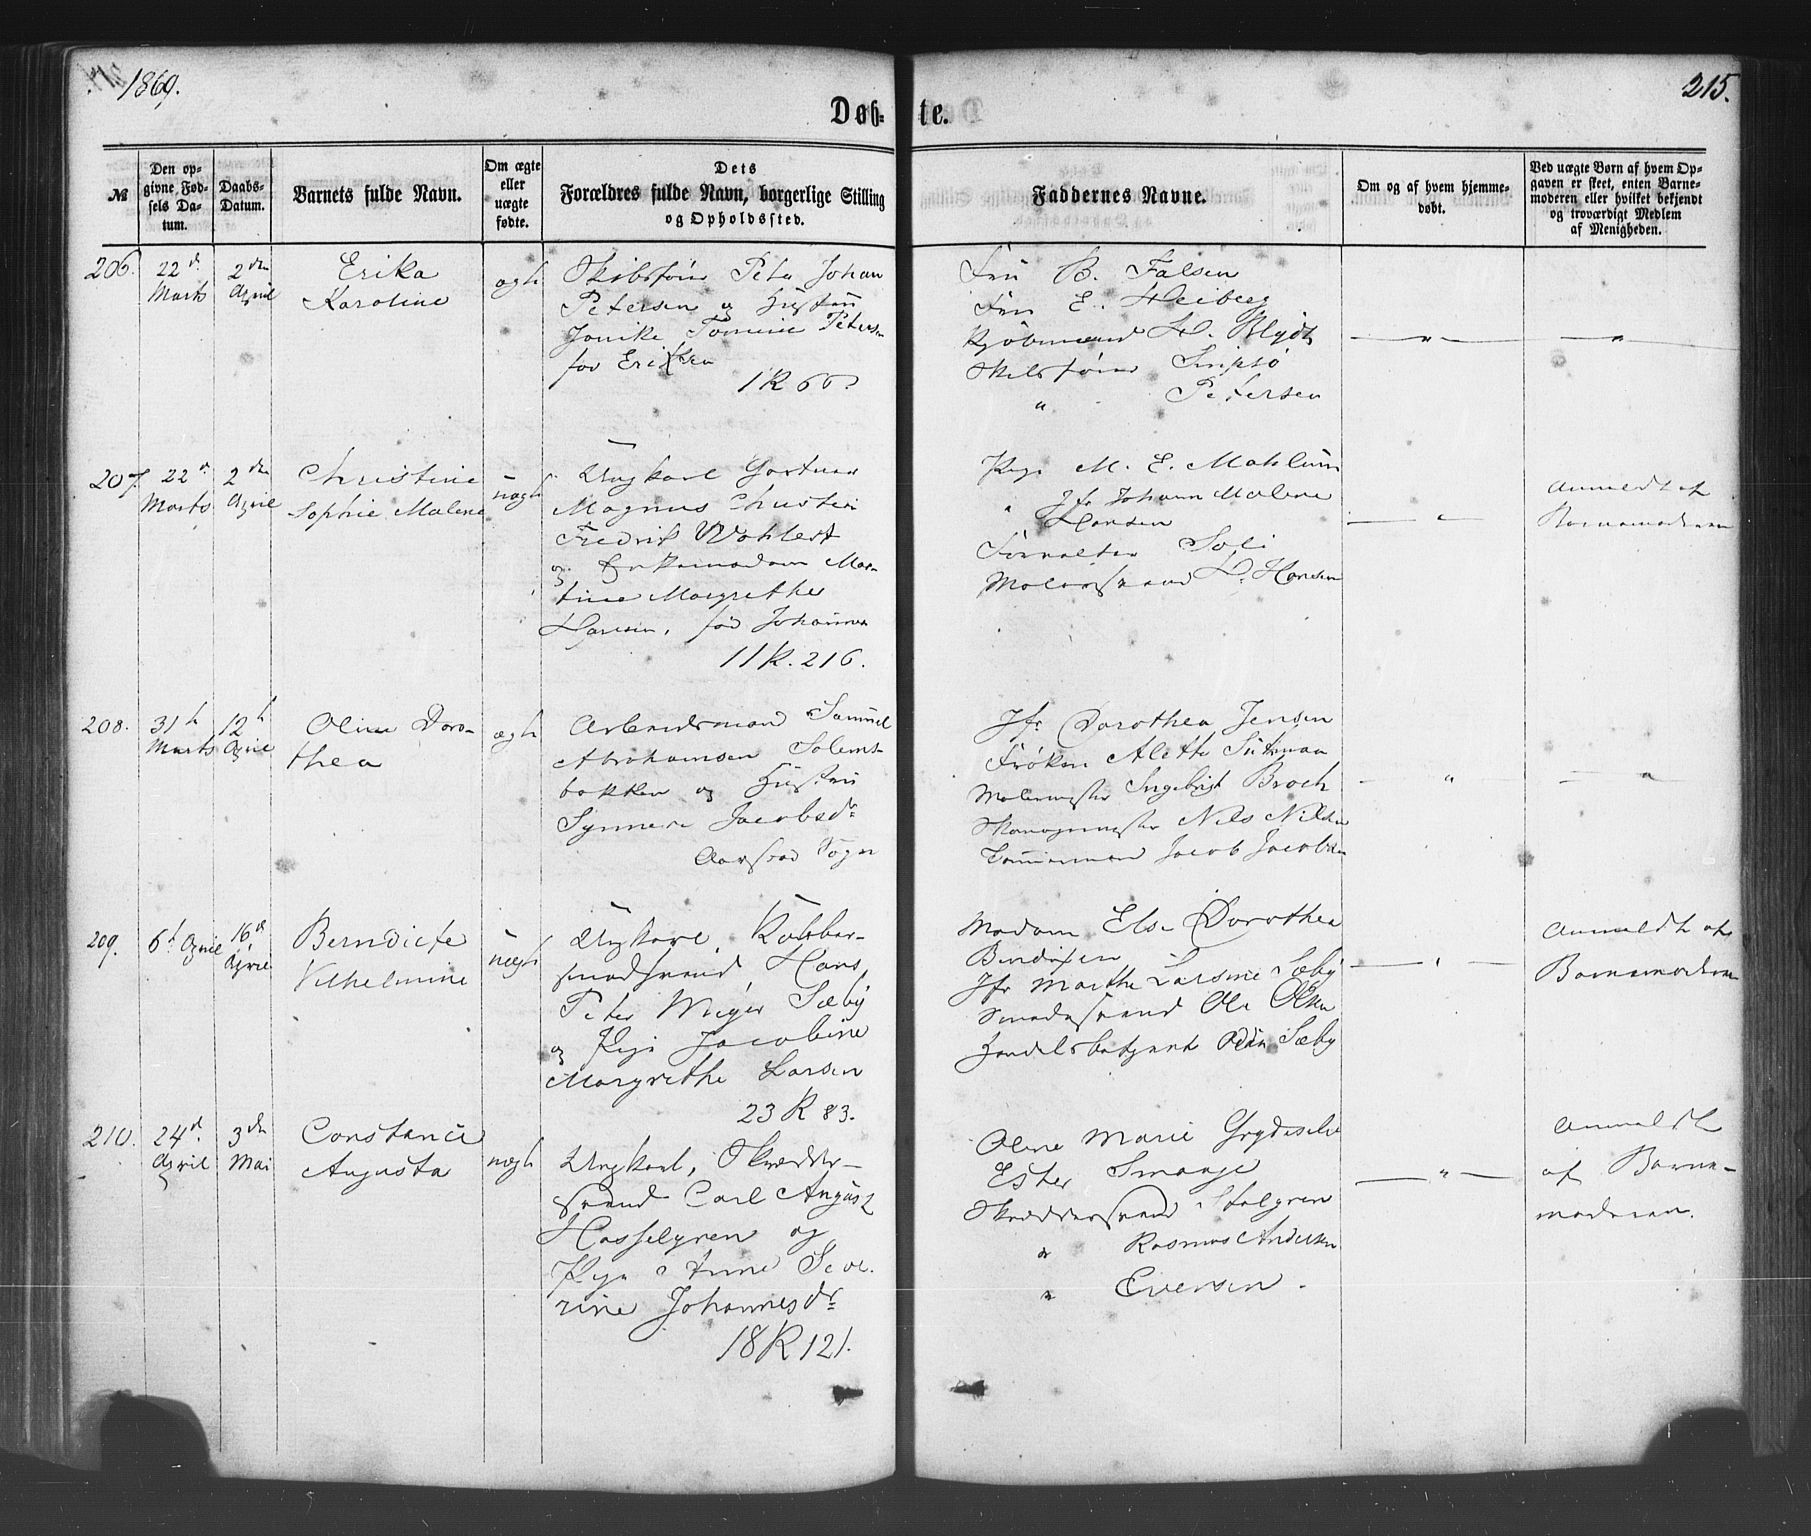 1869.
215.
Døb-
te.
№
Den op-
givne Fød-
sels Da-
tum.
Daabs-
Datum.
Barnets fulde Navn.
Om ægte
eller
uægte
fødte.
Dets
Forældres fulde Navn, borgerlige Stilling
og Opholdssted.
Faddernes Navne.
Om og af hvem hjemme-
døbt.
Ved uægte Børn af hvem Op-
gaven er skeet, enten Barne-
moderen eller hvilket bekjendt
og troværdigt Medlem
af Menigheden.
206.
22d
Marts
2den
April
Erika
Karoline
ægte
Johan
Petersen og Hustru
Peters-
1 R 60.
Fru B. Falsen
Fru E. Heiberg
Kjøbmand H. Blydt
" Petersen
207.
22d
Marts
2den
April
Christine
Sophie Malene
uægte
Ungkarl Gartner
Magnus Christian
Fredrik Wohlert
og Enkemadam Mar-
tine Margrethe
Hansen, fød Johannes
11 R. 216.
Pige M. E. Mahlum
" Jfr Johann Malene
Hansen
Malersvend H. Hansen
Anmeldt af
Barnemoderen
208.
31th
Marts
12th
April
Oline Doro-
thea
ægte
Arbeidsmand Samuel
Abrahamsen Solems-
bakken og Hustru
Synneve Jacobsdr
Aarstad Sogn
Jfr Dorothea Jensen
Frøken Alette Sutman
Malermester Ingebrigt Broch
Skomagermester Nils Nilsen
Tømmermand Jacob Jacobsen
209.
6th April
16d
April
Berndicte
Vilhelmine
uægte
Ungkarl, Kobber-
smedsvend Hans
Peter Meyer Sæby
og Pige Jacobine
Margrethe Larsen
23 R 83.
Madam Else Dorothea
Bendixen
Jfr Marthe Larsine Sæby
Smedesvend Ole Olsen
Handelsbetjent Sæby
Anmeldt af
Barnemoderen
210.
24d
April
3den
Mai
Constance
Augusta
uægte
Ungkarl, Skrædder-
svend Carl August
Hasselgren og
Pige Anne Seve-
rine Johannesdr
18 R 121.
Oline Marie
Ester Smaage
Skræddersvend Stalgren
" Rasmus Andersen
" Eversen.
Anmeldt
af Barne-
moderen.